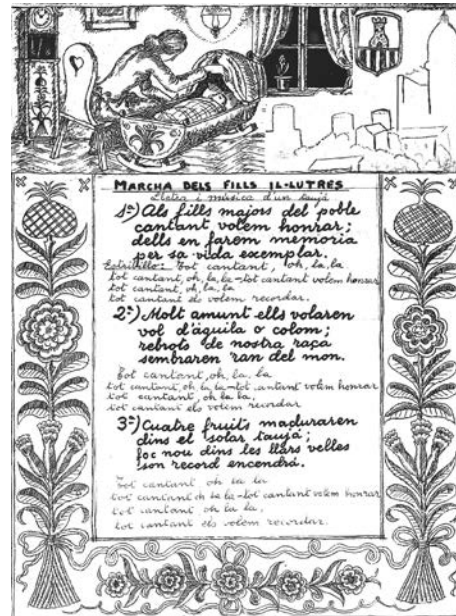 MARCHA DELS FILLS IL-LUTRES
Lletra i música d'un taujà
1ª) Als fills majors del poble
cantant volem honrar;
dells en farem memoria
per sa vida exemplar.
Estrivillo: Tot cantant, oh, la, la
tot cantant, oh, la, la-tot cantant volem honrar
tot cantant, oh, la, la
tot cantant els volem recordar.
2ª) Molt amunt ells volaren
vol d'àquila o colom;
rebrots de nostra raça
sembraren ran del mon.
Tot cantant, oh, la, la
tot cantant, oh, la, la-tot cantant volem honrar
tot cantant, oh, la, la,
tot cantant els volem recordar
3ª) Cuatre fruits maduraren
dins el solar taujà;
foc nou dins les llars velles
son record encendrà.
Tot cantant, oh la la
tot cantant oh la la-tot cantant volem honrar
tot cantant, oh la la,
tot cantant els volem recordar.